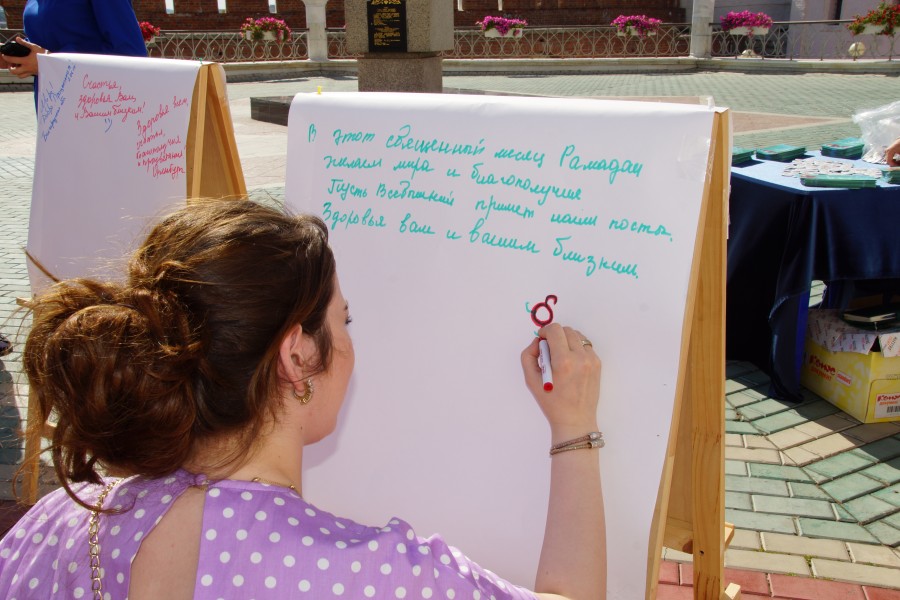 Счастья,
здоровья Вам
и Вашим близким!
Здоровья всем,
счастья,
благополучия
и процветания!
В этот священный месяц Рамадан
желаем мира и благополучие
Пусть Всевышний примет наши посты.
Здоровья вам и вашим близким.